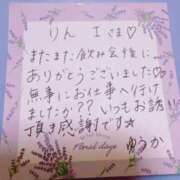 りん Iさま♡
またまた飲み会後に…
ありがとうございました♡
無事にお仕事へ行け
ましたか?? いつもお誘
頂き感謝です☆
ゆうか
Floral days